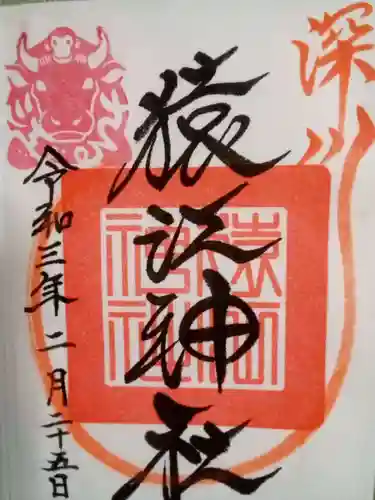 深川
猿江神社
令和三年二月二十五日